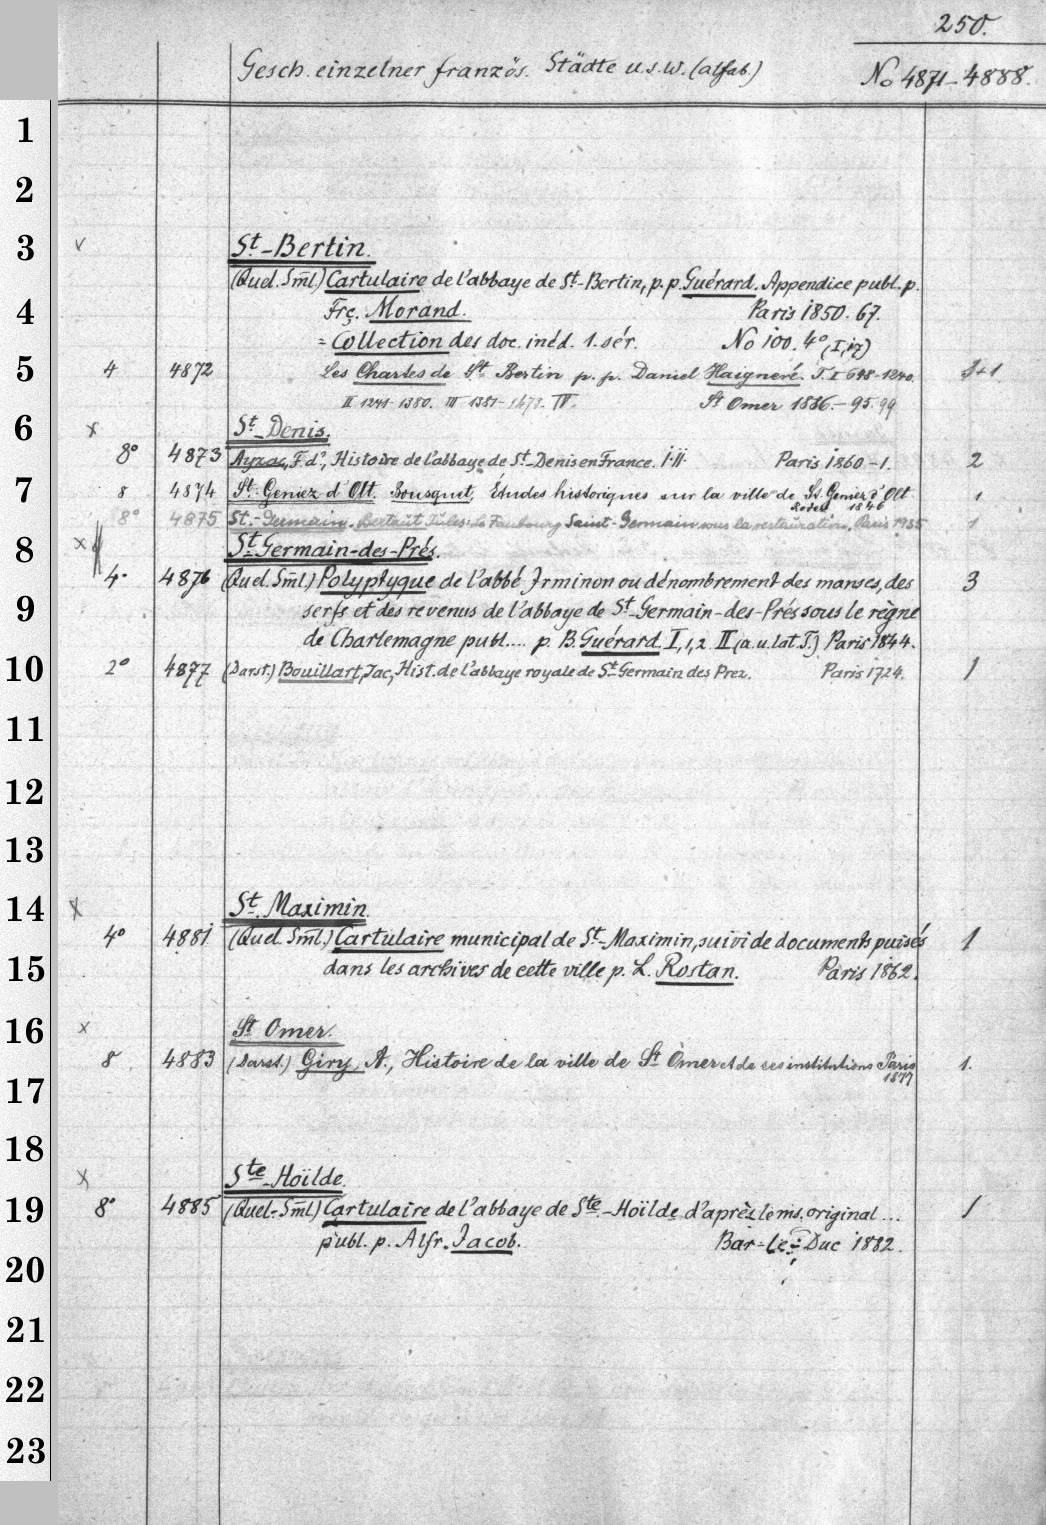 250.
Gesch. einzelner französ. Städte u.s.w. (alfab.)
No 4871-4888.
1
2
3
St-Bertin.
(Quel. Sml.) Cartulaire de l'abbaye de St-Bertin, p. p. Guérard. Appendice publ. p.
4
Frç. Morand. Paris 1850. 67.
= Collection des doc. inéd. 1. sér. No 100. 4°
5
4 4872 Les Chartes de St Bertin p. p. Daniel Haigneré. T. I 648-1240. 3+1
II 1241-1380. III 1381-1473. IV. St Omer 1886.-95.99
6
St-Denis.
8° 4873 Ayzac, F. d', Histoire de l'abbaye de St-Denis en France. I.II. Paris 1860-1. 2
7
8 4874 St. Geniez d'Olt. Bousquet, Études historiques sur la ville de St. Geniez d'Olt 1
Rodez 1846
8° 4875 St.-Germain. Bertaut Jules: Le Faubourg Saint-Germain sous la restauration. Paris 1935 1
8
St-Germain-des-Prés.
4° 4876 (Quel. Sml.) Polyptyque de l'abbé Irminon ou dénombrement des manses, des 3
9
serfs et des revenus de l'abbaye de St-Germain-des-Prés sous le règne
de Charlemagne publ.... p. B. Guérard I,1,2 II (a. u. lat. T.) Paris 1844.
10
2° 4877 (Darst.) Bouillart, Jac, Hist. de l'abbaye royale de St-Germain des Prez. Paris 1724. 1
11
12
13
14
St. Maximin.
4° 4881 (Quel. Sml.) Cartulaire municipal de St-Maximin, suivi de documents puisés 1
15
dans les archives de cette ville p. L. Rostan. Paris 1862.
16
St Omer.
8 4883 (Darst.) Giry, A., Histoire de la ville de St Omer et de ses institutions Paris 1.
1877
17
18
Ste-Hoïlde.
19
8° 4885 (Quel.-Sml.) Cartulaire de l'abbaye de Ste.-Hoïlde d'après le ms. original ... 1
publ. p. Alfr. Jacob. Bar-Le-Duc 1882.
20
21
22
23